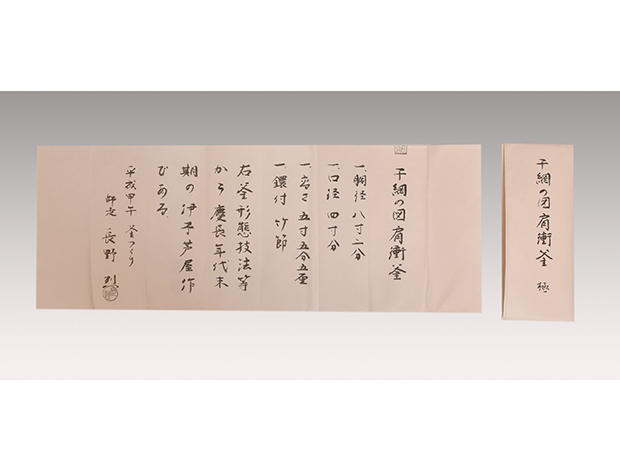 干網の図肩衝釜
一、胴径 八寸二分
一、口径 四寸分
一、高さ 五寸五分五厘
一、鐶付 竹節
右釜形態技法等
から慶長年代末
期の伊予芦屋作
である
平成甲午 釜つくり
師走 長野 烈
干網の図肩衝釜 極